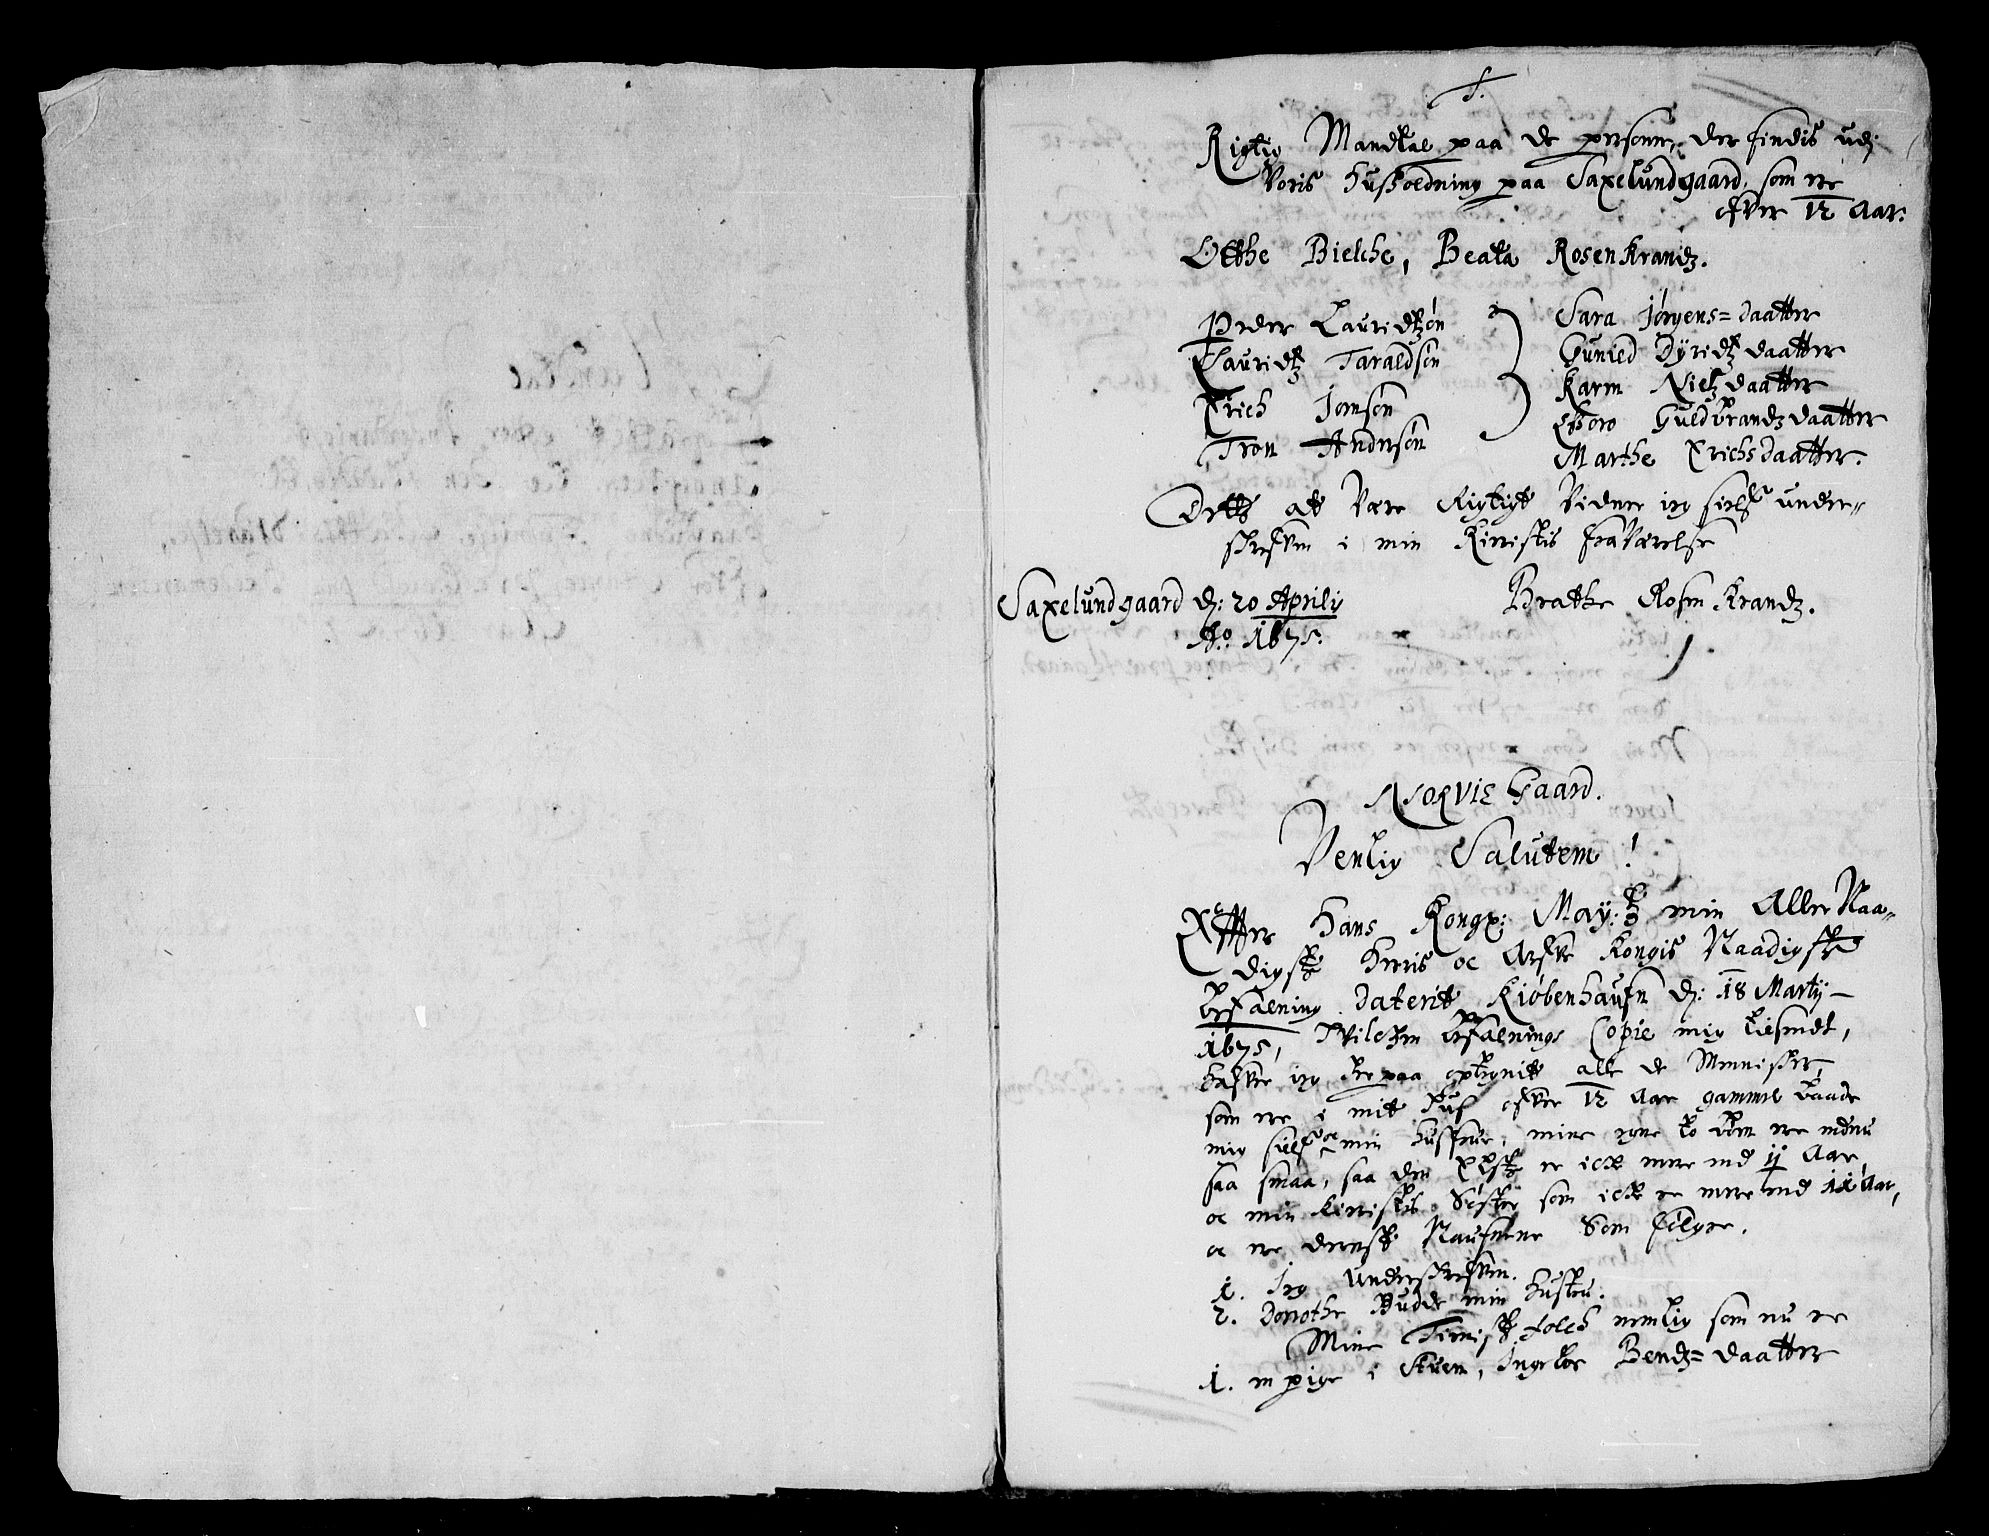 Rigtig Mandtal paa de personer, der findis udj
Voris Husholdning paa Saxelundgaard, som ere
ofver 12 Aar.
Otthe Bielche, Beata Rosenkrandz.
Peder Lauridtzøn
Lauridtz Taraldsøn
Erich Jonsøn
Tron Andersøn
Sara Jørgens=daatter
Gunild Dyridtz daatter
Karen Nielsdaatter
Guldbrandz daatter
Marthe Erichsdaatter.
Dette at Være Rigtigt Vidner ieg sielf under=
skrefven i min Kieristis fraVærelse
Saxelundgaard d: 20 Aprilij
Ao. 1675.
Beathe Rosenkrandz.
Norvig Gaard.
Venlig Salutem!
Effter Hans Kongx: May:tz min Aller Naa=
digste Herris oc Arfve Kongis Naadigste
befalning daterit Kiøbenhaufn d: 18 Martij
1675, Hvilchen befalnings Copie mig tilsendt,
hafver ieg her paa optegnit alle de Mennisker,
som ere i mit Huus ofver 12 Aar gammel baade
mig sielf oc min Hustrue, mine egne to børn ere endnu
saa smaa, saa den Eldste er icke mere end ij Aar,
oc min Kieristis Søster som icke er mere end 11 Aar,
oc ere deris Naufnene Som følger.
1. Jeg underskrefven.
2. Dorothe Budde min hustru.
Mine Tieniste folch nemlig som nu er
1. en pige i Stuen, Ingebor Bendz=daatter